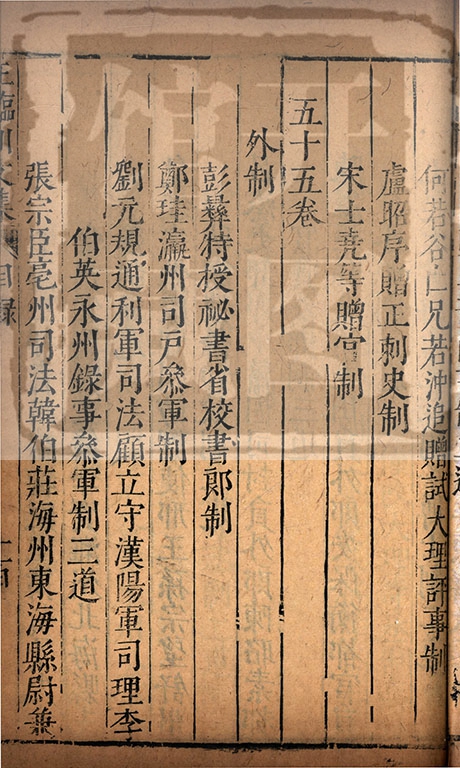 何若谷亡兄若沖追贈試大理評事制
盧昭序贈正刺史制
宋士堯等贈官制
五十五卷
外制
彭彝特授祕書省校書郎制
鄭珪瀛州司戶叅軍制
劉元規通利軍司法顧立守漢陽軍司理李
伯英永州錄事叅軍制三道
張宗臣亳州司法韓伯莊海州東海縣尉兼
王臨川文集 目錄